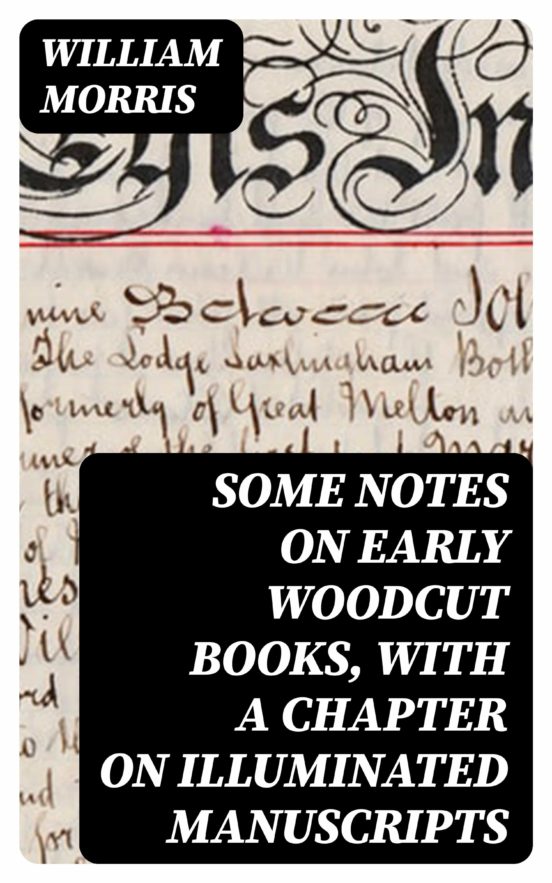 WILLIAM
MORRIS
In
nine Between
The Lodge Saxlingham
formerly of Great Melton
SOME NOTES
ON EARLY
WOODCUT
BOOKS, WITH
A CHAPTER
ON ILLUMINATED
MANUSCRIPTS